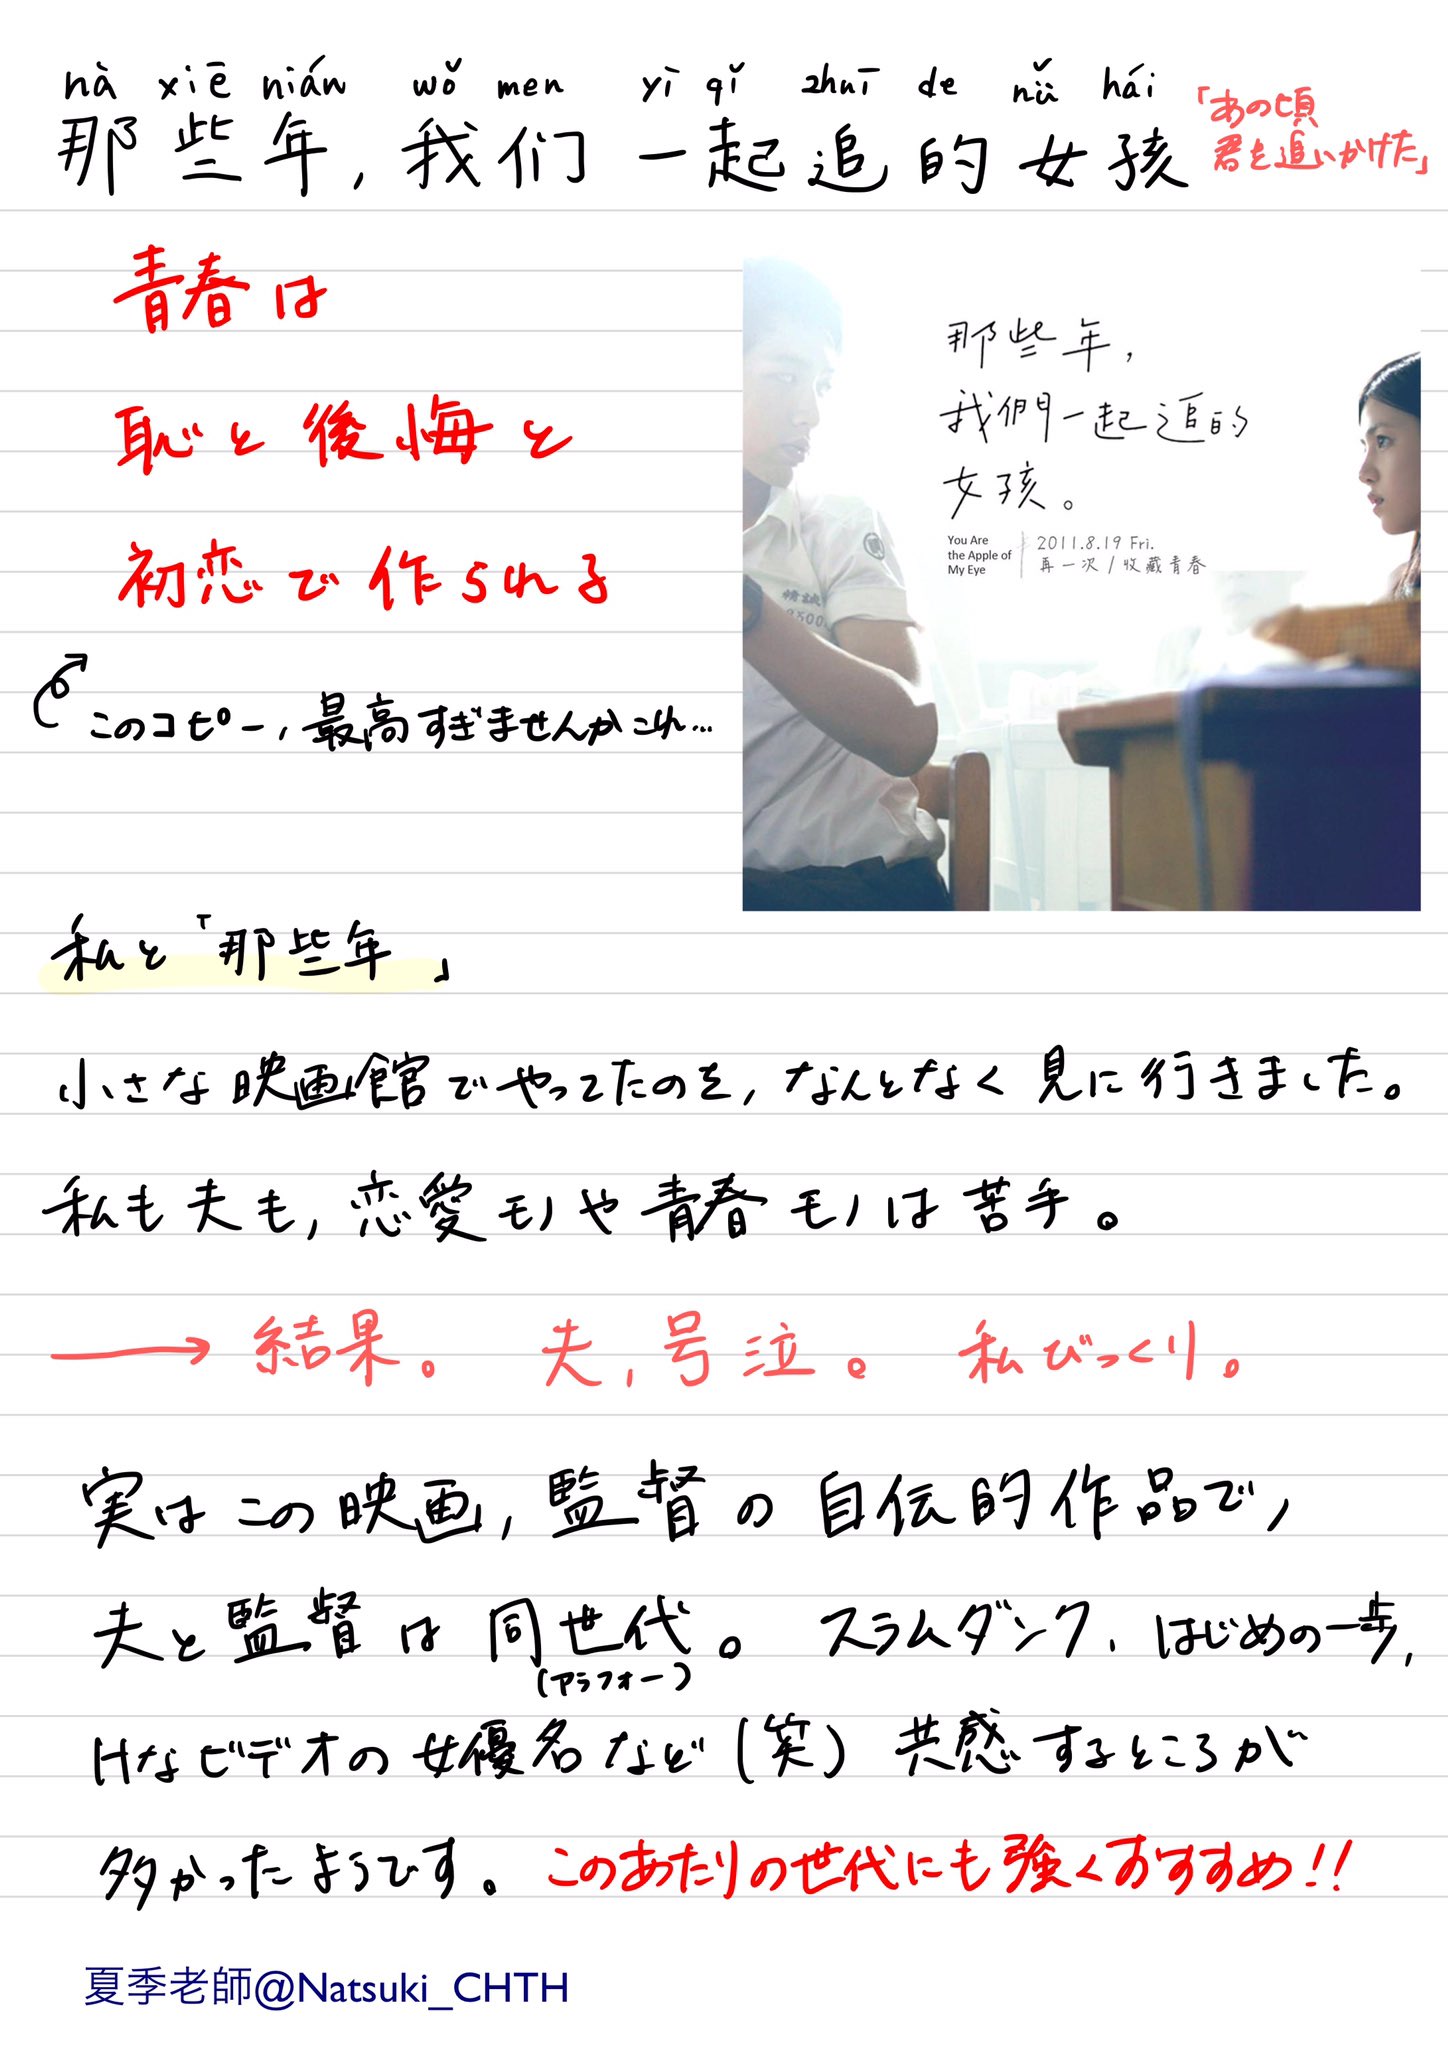 nà xiē nián wǒ men yì qǐ zhuī de nǚ hái
那些年,我们一起追的女孩
「あの頃
君を追いかけた」
青春は
恥と後悔と
初恋で作られる
このコピー,最高すぎませんかこれ…
那些年,
我們一起追的
女孩。
You Are
the Apple of
My Eye
2011.8.19 Fri.
再一次/收藏青春
精誠
私と「那些年」
小さな映画館でやってたのを,なんとなく見に行きました。
私も夫も,恋愛モノや青春モノは苦手。
→結果。 夫,号泣。 私びっくり。
実はこの映画,監督の自伝的作品で,
夫と監督は同世代。スラムダンク、はじめの一歩,
(アラフォー)
Hなビデオの女優名など(笑)共感するところが
多かったようです。このあたりの世代にも強くおすすめ!!
夏季老師@Natsuki_CHTH